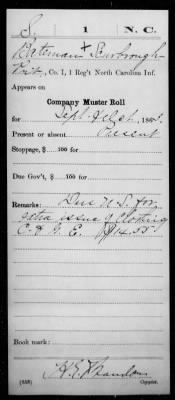 S. 1 N.C.
Bateman + Scarbrough
Pvt., Co. I, 1 Reg't North Carolina Inf.
Appears on
Company Muster Roll
for Sept. & Oct., 1863.
Present or absent Present
Stoppage, $ 100 for
Due Gov't, $ 100 for
Remarks: Due U. S. for
extra issue of Clothing
C. & G. E. $14.55
Book mark:
(358) Copyist.